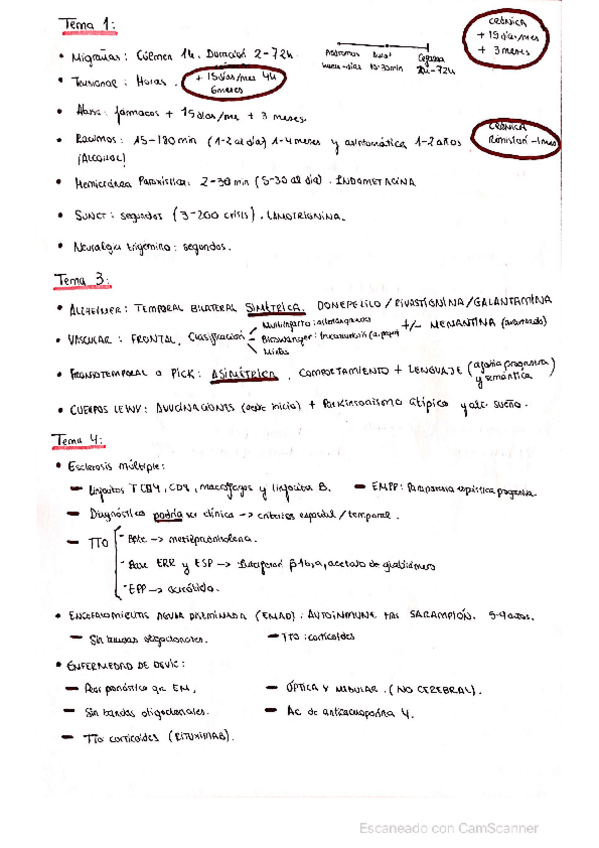 Tema 1:
CRÓNICA
+ 15 días/mes
+ 3 meses
• Migrañas: Cólmen 1h. Duración 2-72h
Pródromos Aura Cefalea
horas-días 10-30min 24-72h
• Tensional: Horas. + 15 días/mes 4h
6 meses
• Abuso: fármacos + 15 días/mes + 3 meses.
• Racimos: 15-180 min (1-2 al día) 1-4 meses y asintomática 1-2 años
(ALCOHOL)
CRÓNICA
Remisión -1mes
• Hemicránea Paroxística: 2-30 min (5-30 al día). INDOMETACINA
• SUNCT: segundos (3-200 crisis). LAMOTRIGINA.
• Neuralgia trigemino: segundos.
Tema 3:
• ALZHEIMER: TEMPORAL BILATERAL SIMÉTRICA. DONEPECILO / RIVASTIGNINA / GALANTAMINA
• VASCULAR: FRONTAL. Clasificación
Multiinfarto:
Binswanger:
Mixtas
+/- MEMANTINA (avanzado)
• FRONTOTEMPORAL O PICK: ASIMÉTRICA. COMPORTAMIENTO + LENGUAJE (afasia progresiva
y semántica)
• CUERPOS LEWY: ALUCINACIONES (desde inicio) + Parkinsonismo atípico y alt. sueño.
Tema 4:
• Esclerosis múltiple:
- Linfocitos T CD4, CD8, macrófagos y linfocitos B. - EMPP: Paraparesia espástica progresiva.
- Diagnóstico podría ser clínica -> criterios espacial / temporal.
- TTO
- Brote -> metilprednisolona.
- Base ERR y ESP -> Interferon β 1b, a, acetato de glatirámero
- EPP -> ocrelizb.
• ENCEFALOMIELITIS AGUDA DISEMINADA (EMAD): AUTOINMUNE tras SARAMPIÓN. 5-9 años.
- Sin bandas oligoclonales. - TTO: corticoides
• ENFERMEDAD DE DEVIC:
- Peor pronóstico que EM. - ÓPTICA Y MEDULAR. (NO CEREBRAL).
- Sin bandas oligoclonales. - Ac de antiacuaporina 4.
- TTo corticoides (RITUXIMAB).
Escaneado con CamScanner